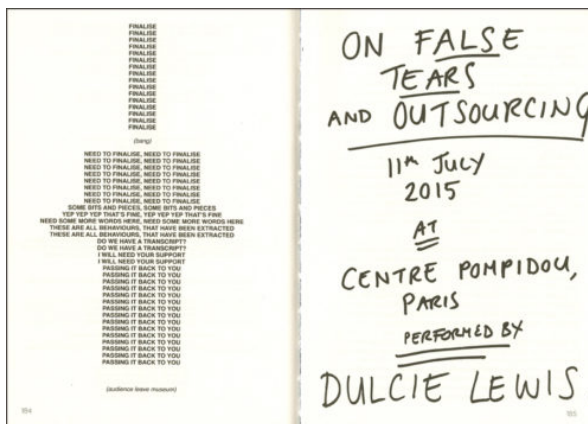 FINALISE
FINALISE
FINALISE
FINALISE
FINALISE
FINALISE
FINALISE
FINALISE
FINALISE
FINALISE
FINALISE
FINALISE
FINALISE
FINALISE
FINALISE
FINALISE
(bang)
NEED TO FINALISE, NEED TO FINALISE
NEED TO FINALISE, NEED TO FINALISE
NEED TO FINALISE, NEED TO FINALISE
NEED TO FINALISE, NEED TO FINALISE
NEED TO FINALISE, NEED TO FINALISE
NEED TO FINALISE, NEED TO FINALISE
NEED TO FINALISE, NEED TO FINALISE
NEED TO FINALISE, NEED TO FINALISE
SOME BITS AND PIECES, SOME BITS AND PIECES
YEP YEP YEP THAT'S FINE, YEP YEP YEP THAT'S FINE
NEED SOME MORE WORDS HERE, NEED SOME MORE WORDS HERE
THESE ARE ALL BEHAVIOURS, THAT HAVE BEEN EXTRACTED
THESE ARE ALL BEHAVIOURS, THAT HAVE BEEN EXTRACTED
DO WE HAVE A TRANSCRIPT?
DO WE HAVE A TRANSCRIPT?
I WILL NEED YOUR SUPPORT
I WILL NEED YOUR SUPPORT
PASSING IT BACK TO YOU
PASSING IT BACK TO YOU
PASSING IT BACK TO YOU
PASSING IT BACK TO YOU
PASSING IT BACK TO YOU
PASSING IT BACK TO YOU
PASSING IT BACK TO YOU
PASSING IT BACK TO YOU
PASSING IT BACK TO YOU
PASSING IT BACK TO YOU
PASSING IT BACK TO YOU
PASSING IT BACK TO YOU
PASSING IT BACK TO YOU
PASSING IT BACK TO YOU
PASSING IT BACK TO YOU
(audience leave museum)
184
ON FALSE
TEARS
AND OUTSOURCING
11th JULY
2015
AT
CENTRE POMPIDOU,
PARIS
PERFORMED BY
DULCIE LEWIS
185